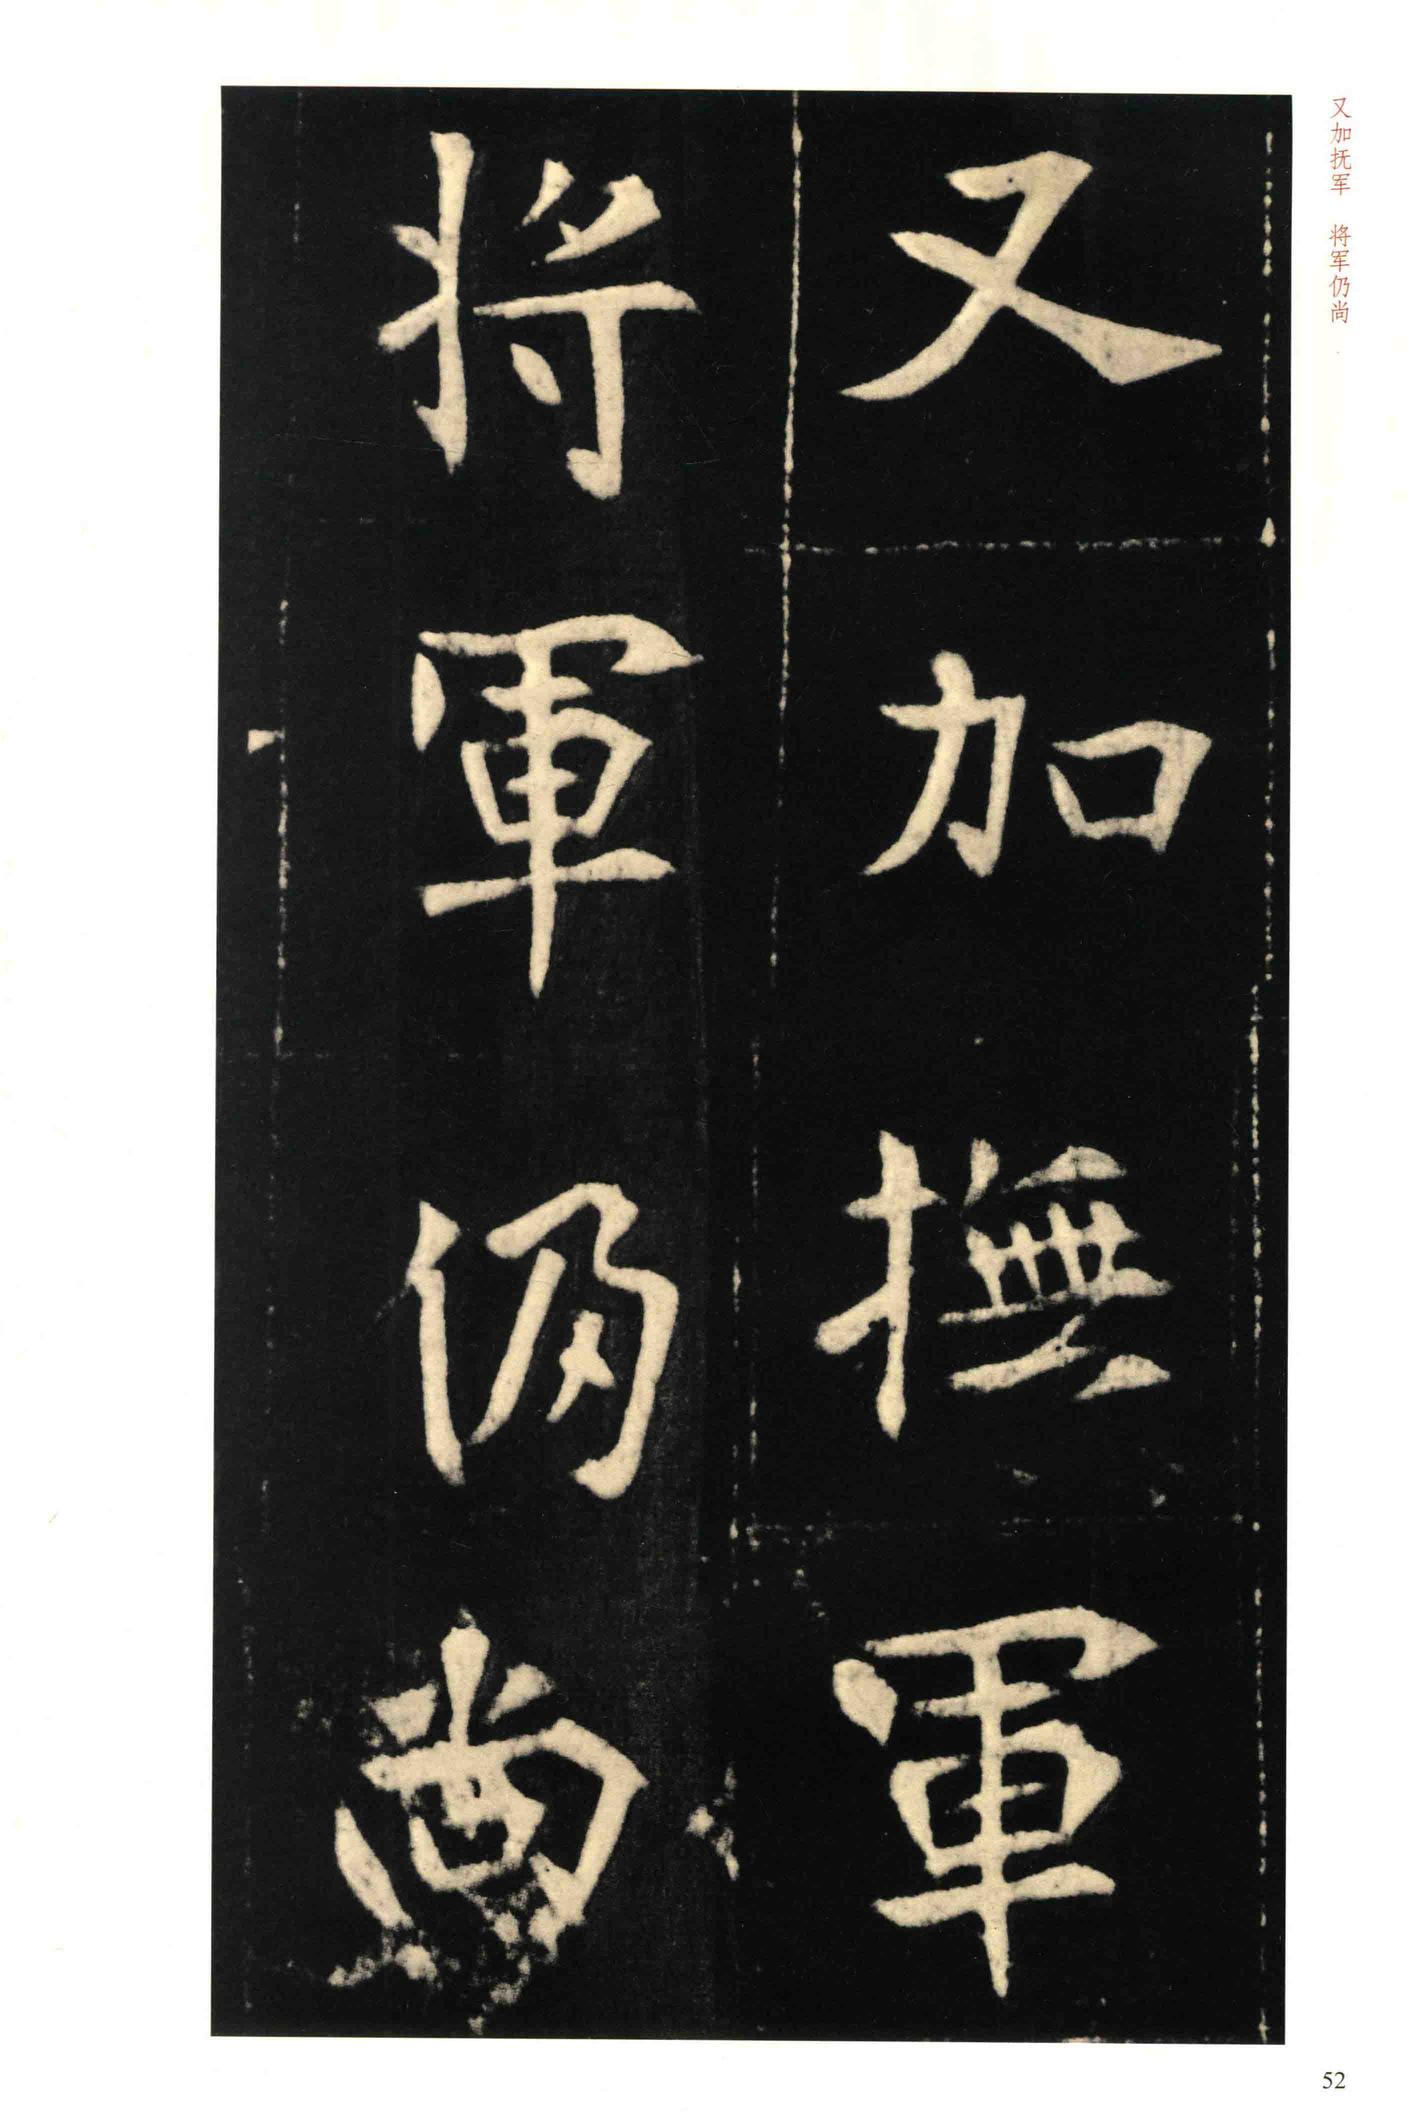 又加撫軍
将軍仍尚
又加抚军　将军仍尚
52